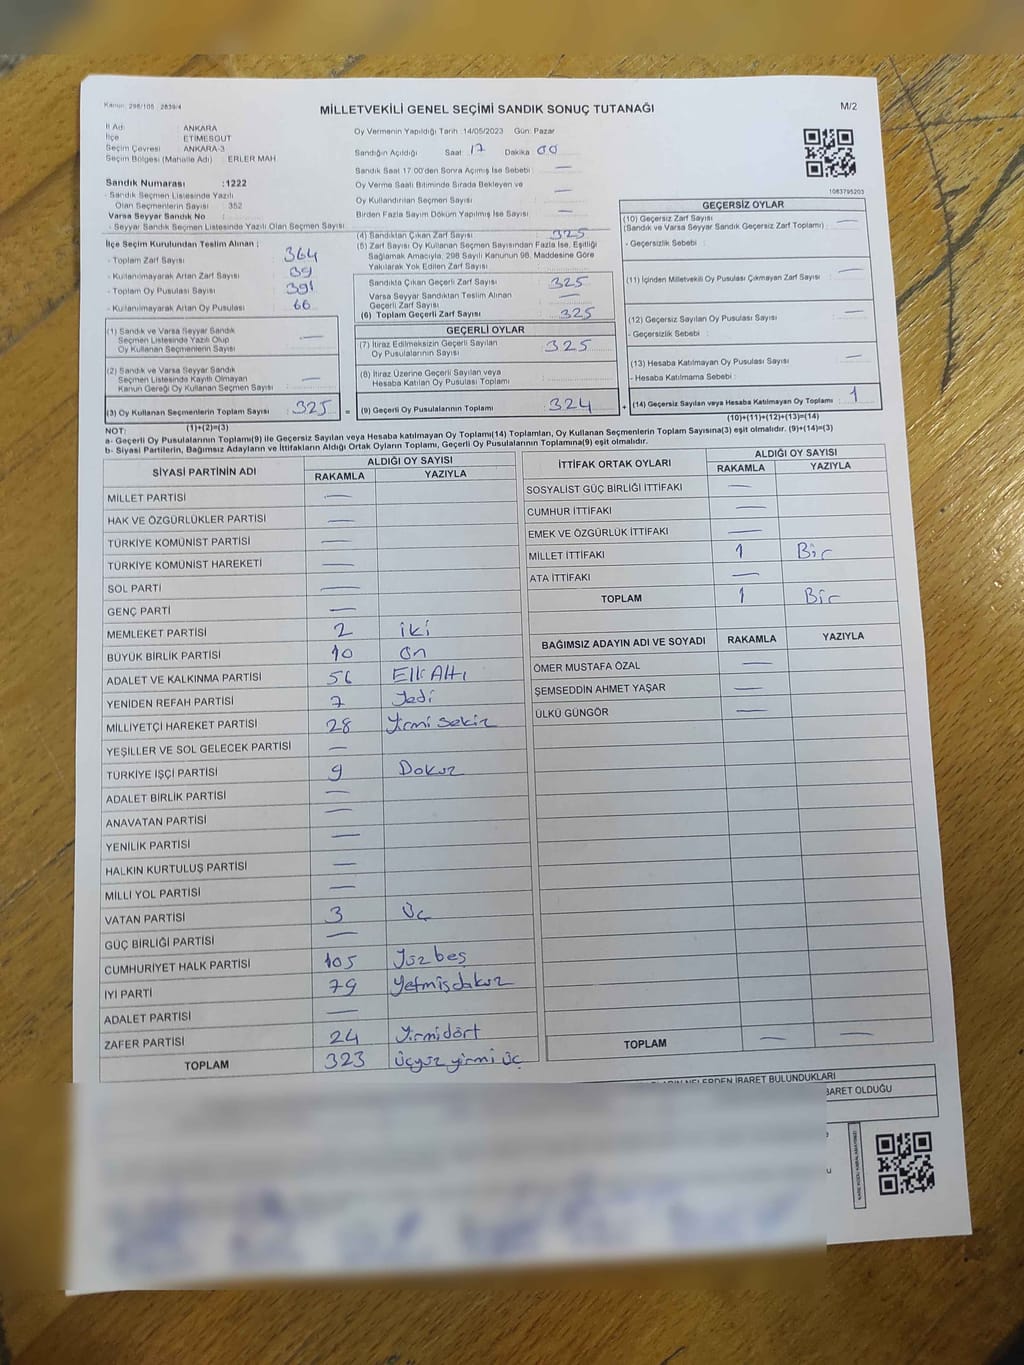 Kanun: 298/105 : 2839/4
MİLLETVEKİLİ GENEL SEÇİMİ SANDIK SONUÇ TUTANAĞI
M/2
İl Adı : ANKARA
İlçe : ETİMESGUT
Seçim Çevresi : ANKARA-3
Seçim Bölgesi (Mahalle Adı) : ERLER MAH.
Sandık Numarası : 1222
- Sandık Seçmen Listesinde Yazılı
Olan Seçmenlerin Sayısı : 352
Varsa Seyyar Sandık No :
- Seyyar Sandık Seçmen Listesinde Yazılı Olan Seçmen Sayısı :
Oy Vermenin Yapıldığı Tarih :14/05/2023 Gün: Pazar
Sandığın Açıldığı Saat: 17 Dakika 00
Sandık Saat 17.00'den Sonra Açımış İse Sebebi : —
Oy Verme Saati Bitiminde Sırada Bekleyen ve
Oy Kullandırılan Seçmen Sayısı : —
Birden Fazla Sayım Döküm Yapılmış İse Sayısı : —
1083795203
İlçe Seçim Kurulundan Teslim Alınan ;
- Toplam Zarf Sayısı : 364
- Kullanılmayarak Artan Zarf Sayısı : 39
- Toplam Oy Pusulası Sayısı : 391
- Kullanılmayarak Artan Oy Pusulası : 66
(1) Sandık ve Varsa Seyyar Sandık
Seçmen Listesinde Yazılı Olup
Oy Kullanan Seçmenlerin Sayısı : —
(2) Sandık ve Varsa Seyyar Sandık
Seçmen Listesinde Kayıtlı Olmayan
Kanun Gereği Oy Kullanan Seçmen Sayısı : —
(3) Oy Kullanan Seçmenlerin Toplam Sayısı : 325
(1)+(2)=(3)
(4) Sandıktan Çıkan Zarf Sayısı : 325
(5) Zarf Sayısı Oy Kullanan Seçmen Sayısından Fazla İse, Eşitliği
Sağlamak Amacıyla, 298 Sayılı Kanunun 98. Maddesine Göre
Yakılarak Yok Edilen Zarf Sayısı :
Sandıkta Çıkan Geçerli Zarf Sayısı : 325
Varsa Seyyar Sandıktan Teslim Alınan
Geçerli Zarf Sayısı : —
(6) Toplam Geçerli Zarf Sayısı : 325
GEÇERLİ OYLAR
(7) İtiraz Edilmeksizin Geçerli Sayılan
Oy Pusulalarının Sayısı : 325
(8) İtiraz Üzerine Geçerli Sayılan veya
Hesaba Katılan Oy Pusulası Toplamı :
= (9) Geçerli Oy Pusulalarının Toplamı : 324
GEÇERSİZ OYLAR
(10) Geçersiz Zarf Sayısı
(Sandık ve Varsa Seyyar Sandık Geçersiz Zarf Toplamı) : —
- Geçersizlik Sebebi :
(11) İçinden Milletvekili Oy Pusulası Çıkmayan Zarf Sayısı : —
(12) Geçersiz Sayılan Oy Pusulası Sayısı : —
- Geçersizlik Sebebi :
(13) Hesaba Katılmayan Oy Pusulası Sayısı : —
- Hesaba Katılmama Sebebi :
+ (14) Geçersiz Sayılan veya Hesaba Katılmayan Oy Toplamı : 1
(10)+(11)+(12)+(13)=(14)
NOT:
a- Geçerli Oy Pusulalarının Toplamı(9) ile Geçersiz Sayılan veya Hesaba katılmayan Oy Toplamı(14) Toplamları, Oy Kullanan Seçmenlerin Toplam Sayısına(3) eşit olmalıdır. (9)+(14)=(3)
b- Siyasi Partilerin, Bağımsız Adayların ve İttifakların Aldığı Oyların Toplamı, Geçerli Oy Pusulalarının Toplamına(9) eşit olmalıdır.
SİYASİ PARTİNİN ADI ALDIĞI OY SAYISI
RAKAMLA YAZIYLA
MİLLET PARTİSİ —
HAK VE ÖZGÜRLÜKLER PARTİSİ —
TÜRKİYE KOMÜNİST PARTİSİ —
TÜRKİYE KOMÜNİST HAREKETİ —
SOL PARTİ —
GENÇ PARTİ —
MEMLEKET PARTİSİ 2 iki
BÜYÜK BİRLİK PARTİSİ 10 on
ADALET VE KALKINMA PARTİSİ 56 Elli Altı
YENİDEN REFAH PARTİSİ 7 Yedi
MİLLİYETÇİ HAREKET PARTİSİ 28 Yirmi sekiz
YEŞİLLER VE SOL GELECEK PARTİSİ —
TÜRKİYE İŞÇİ PARTİSİ 9 Dokuz
ADALET BİRLİK PARTİSİ —
ANAVATAN PARTİSİ —
YENİLİK PARTİSİ —
HALKIN KURTULUŞ PARTİSİ —
MİLLİ YOL PARTİSİ —
VATAN PARTİSİ 3 Üç
GÜÇ BİRLİĞİ PARTİSİ —
CUMHURİYET HALK PARTİSİ 105 Yüz beş
İYİ PARTİ 79 Yetmiş dokuz
ADALET PARTİSİ —
ZAFER PARTİSİ 24 Yirmi dört
TOPLAM 323 Üçyüz yirmi üç
İTTİFAK ORTAK OYLARI ALDIĞI OY SAYISI
RAKAMLA YAZIYLA
SOSYALİST GÜÇ BİRLİĞİ İTTİFAKI —
CUMHUR İTTİFAKI —
EMEK VE ÖZGÜRLÜK İTTİFAKI —
MİLLET İTTİFAKI 1 Bir
ATA İTTİFAKI —
TOPLAM 1 Bir
BAĞIMSIZ ADAYIN ADI VE SOYADI RAKAMLA YAZIYLA
ÖMER MUSTAFA ÖZAL —
ŞEMSEDDİN AHMET YAŞAR —
ÜLKÜ GÜNGÖR —
TOPLAM — —
NELERDEN İBARET BULUNDUKLARI
BARET OLDUĞU